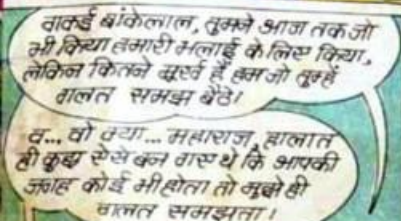 वाकई बांकेलाल, तुमने आज तक जो
भी किया हमारी भलाई के लिए किया,
लेकिन कितने मूर्ख हैं हम जो तुम्हें
गलत समझ बैठे!
व... वो क्या... महाराज, हालात
ही कुछ ऐसे बन गए थे कि आपकी
जगह कोई भी होता तो मुझे ही
गलत समझता!